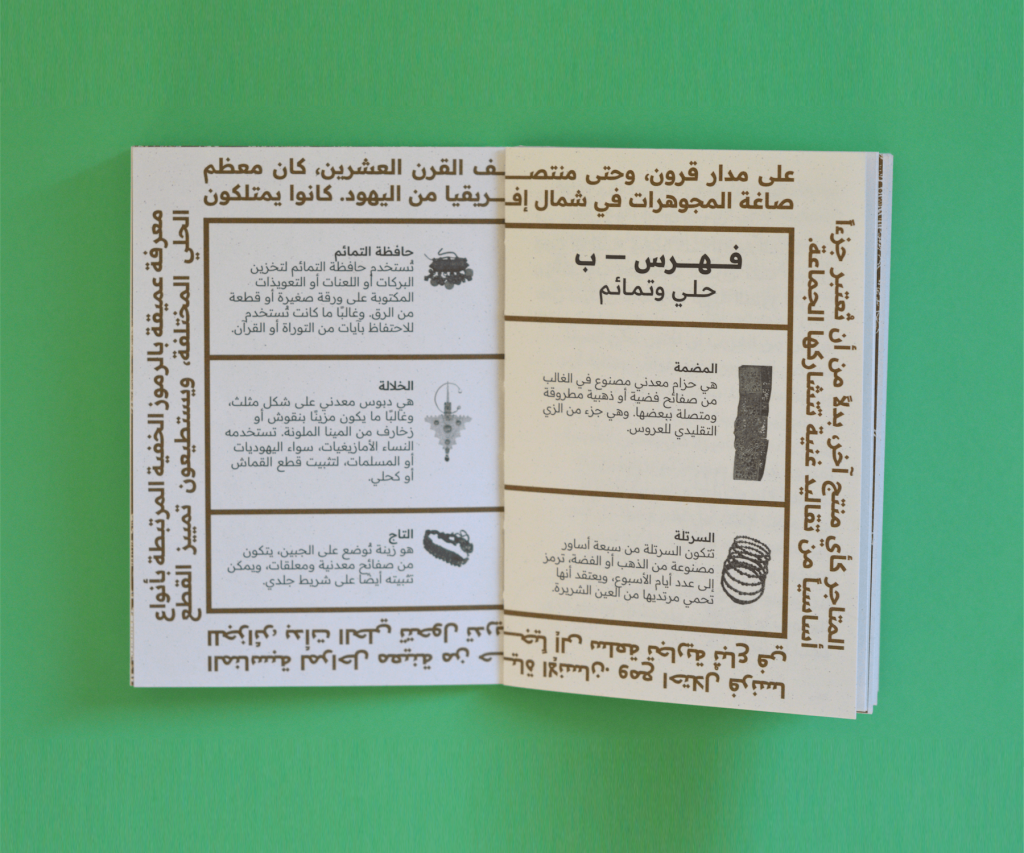 على مدار قرون، وحتى منتصـــف القرن العشرين، كان معظم
صاغة المجوهرات في شمال إفـــريقيا من اليهود. كانوا يمتلكون
معرفة عميقة بالرموز الخفية المرتبطة بأنواع
الحلي المختلفة، ويستطيعون تمييز القطع
المناسبة لمراحل معينة من حـــياة الإنسان. ومع احتلال فرنسا
للجزائر، بدأت الحلي تتحول تدريـــجيا إلى سلعة تجارية تُباع في
المتاجر كأي منتج آخر، بدلاً من أن تُعتبر جزءاً
أساسياً من تقاليد غنية تتشاركها الجماعة.
فـهـرس — ب
حلي وتمائم
المضمة
هي حزام معدني مصنوع في الغالب
من صفائح فضية أو ذهبية مطروقة
ومتصلة ببعضها. وهي جزء من الزي
التقليدي للعروس.
السرتلة
تتكون السرتلة من سبعة أساور
مصنوعة من الذهب أو الفضة، ترمز
إلى عدد أيام الأسبوع، ويعتقد أنها
تحمي مرتديها من العين الشريرة.
حافظة التمائم
تُستخدم حافظة التمائم لتخزين
البركات أو اللعنات أو التعويذات
المكتوبة على ورقة صغيرة أو قطعة
من الرق. وغالبًا ما كانت تُستخدم
للاحتفاظ بآيات من التوراة أو القرآن.
الخلالة
هي دبوس معدني على شكل مثلث،
وغالبًا ما يكون مزينًا بنقوش أو
زخارف من المينا الملونة. تستخدمه
النساء الأمازيغيات، سواء اليهوديات
أو المسلمات، لتثبيت قطع القماش
أو كحلي.
التاج
هو زينة تُوضع على الجبين، يتكون
من صفائح معدنية ومعلقات، ويمكن
تثبيته أيضًا على شريط جلدي.